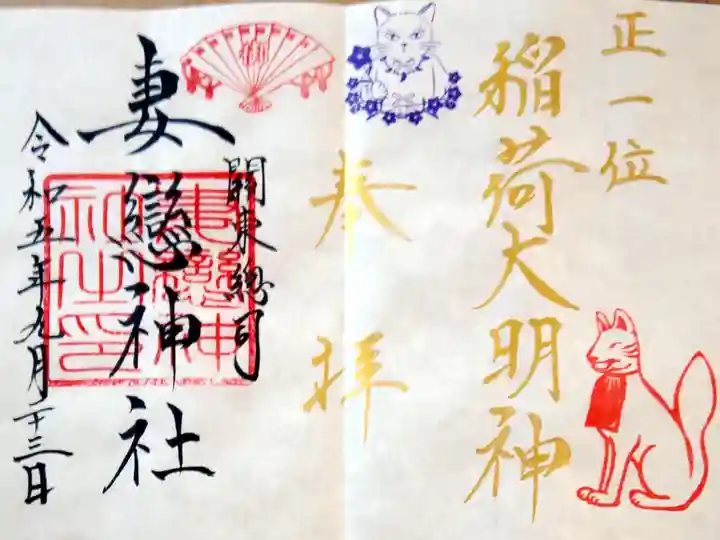 正一位
稲荷大明神
奉拝
關東總司
妻戀神社
妻戀神社之印
令和五年九月二十三日